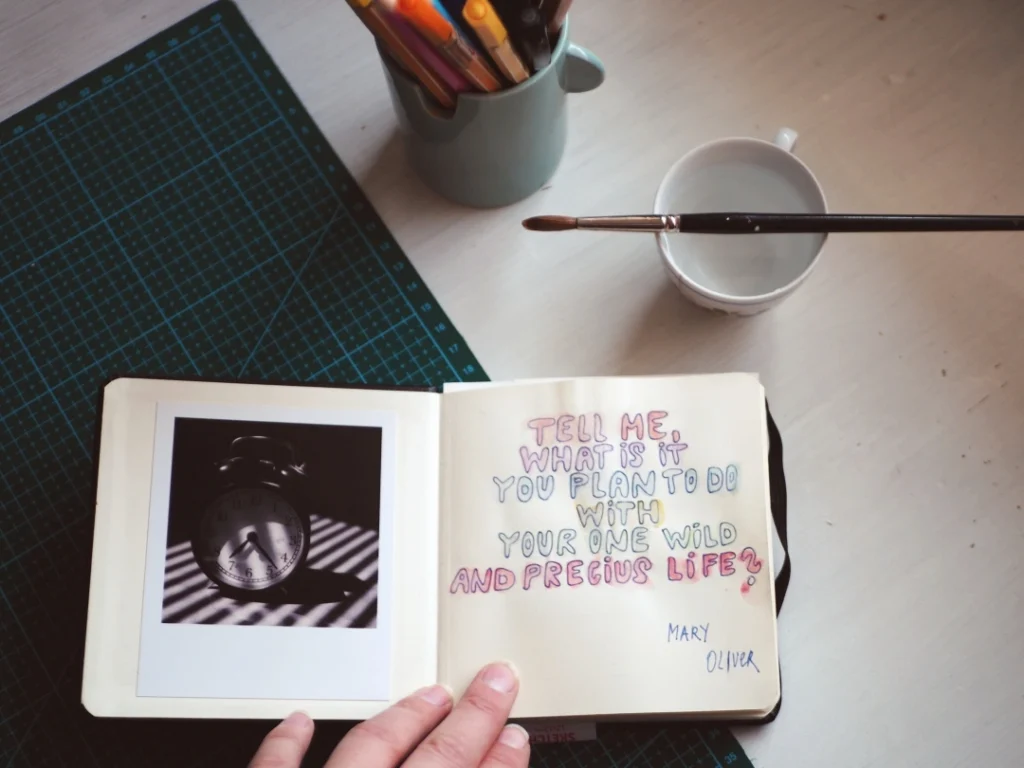 TELL ME,
WHAT IS IT
YOU PLAN TO DO
WITH
YOUR ONE WILD
AND PRECIUS LIFE?
MARY
OLIVER